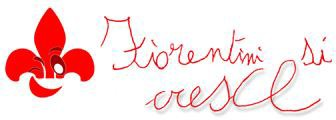 Fiorentini si
cresce